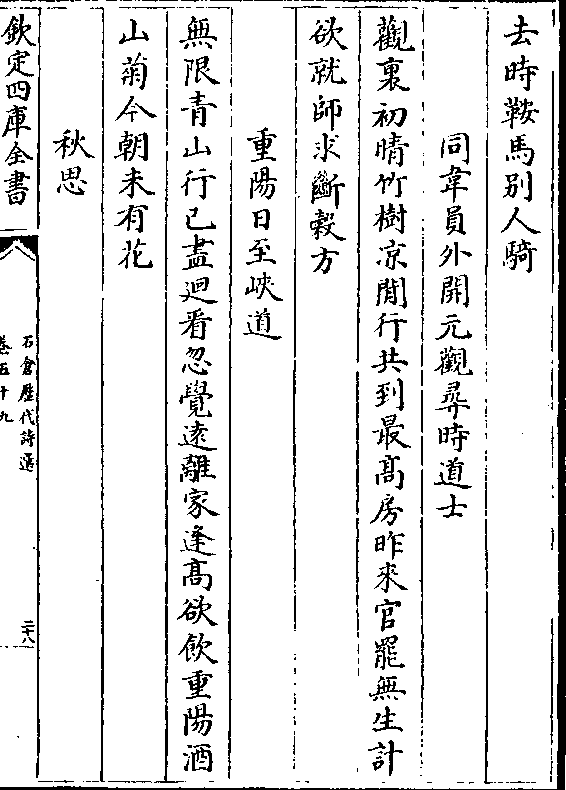 去時鞍馬别人騎
同韋員外開元觀尋時道士
觀裏初晴竹樹凉閒行共到最髙房昨來官罷無生計
欲就師求斷穀方
重陽日至峽道
無限青山行已盡迴看忽覺遠離家逢髙欲飲重陽酒
山菊今朝未有花
秋思
欽定四庫全書
石倉歴代詩選
卷五十九
二十八